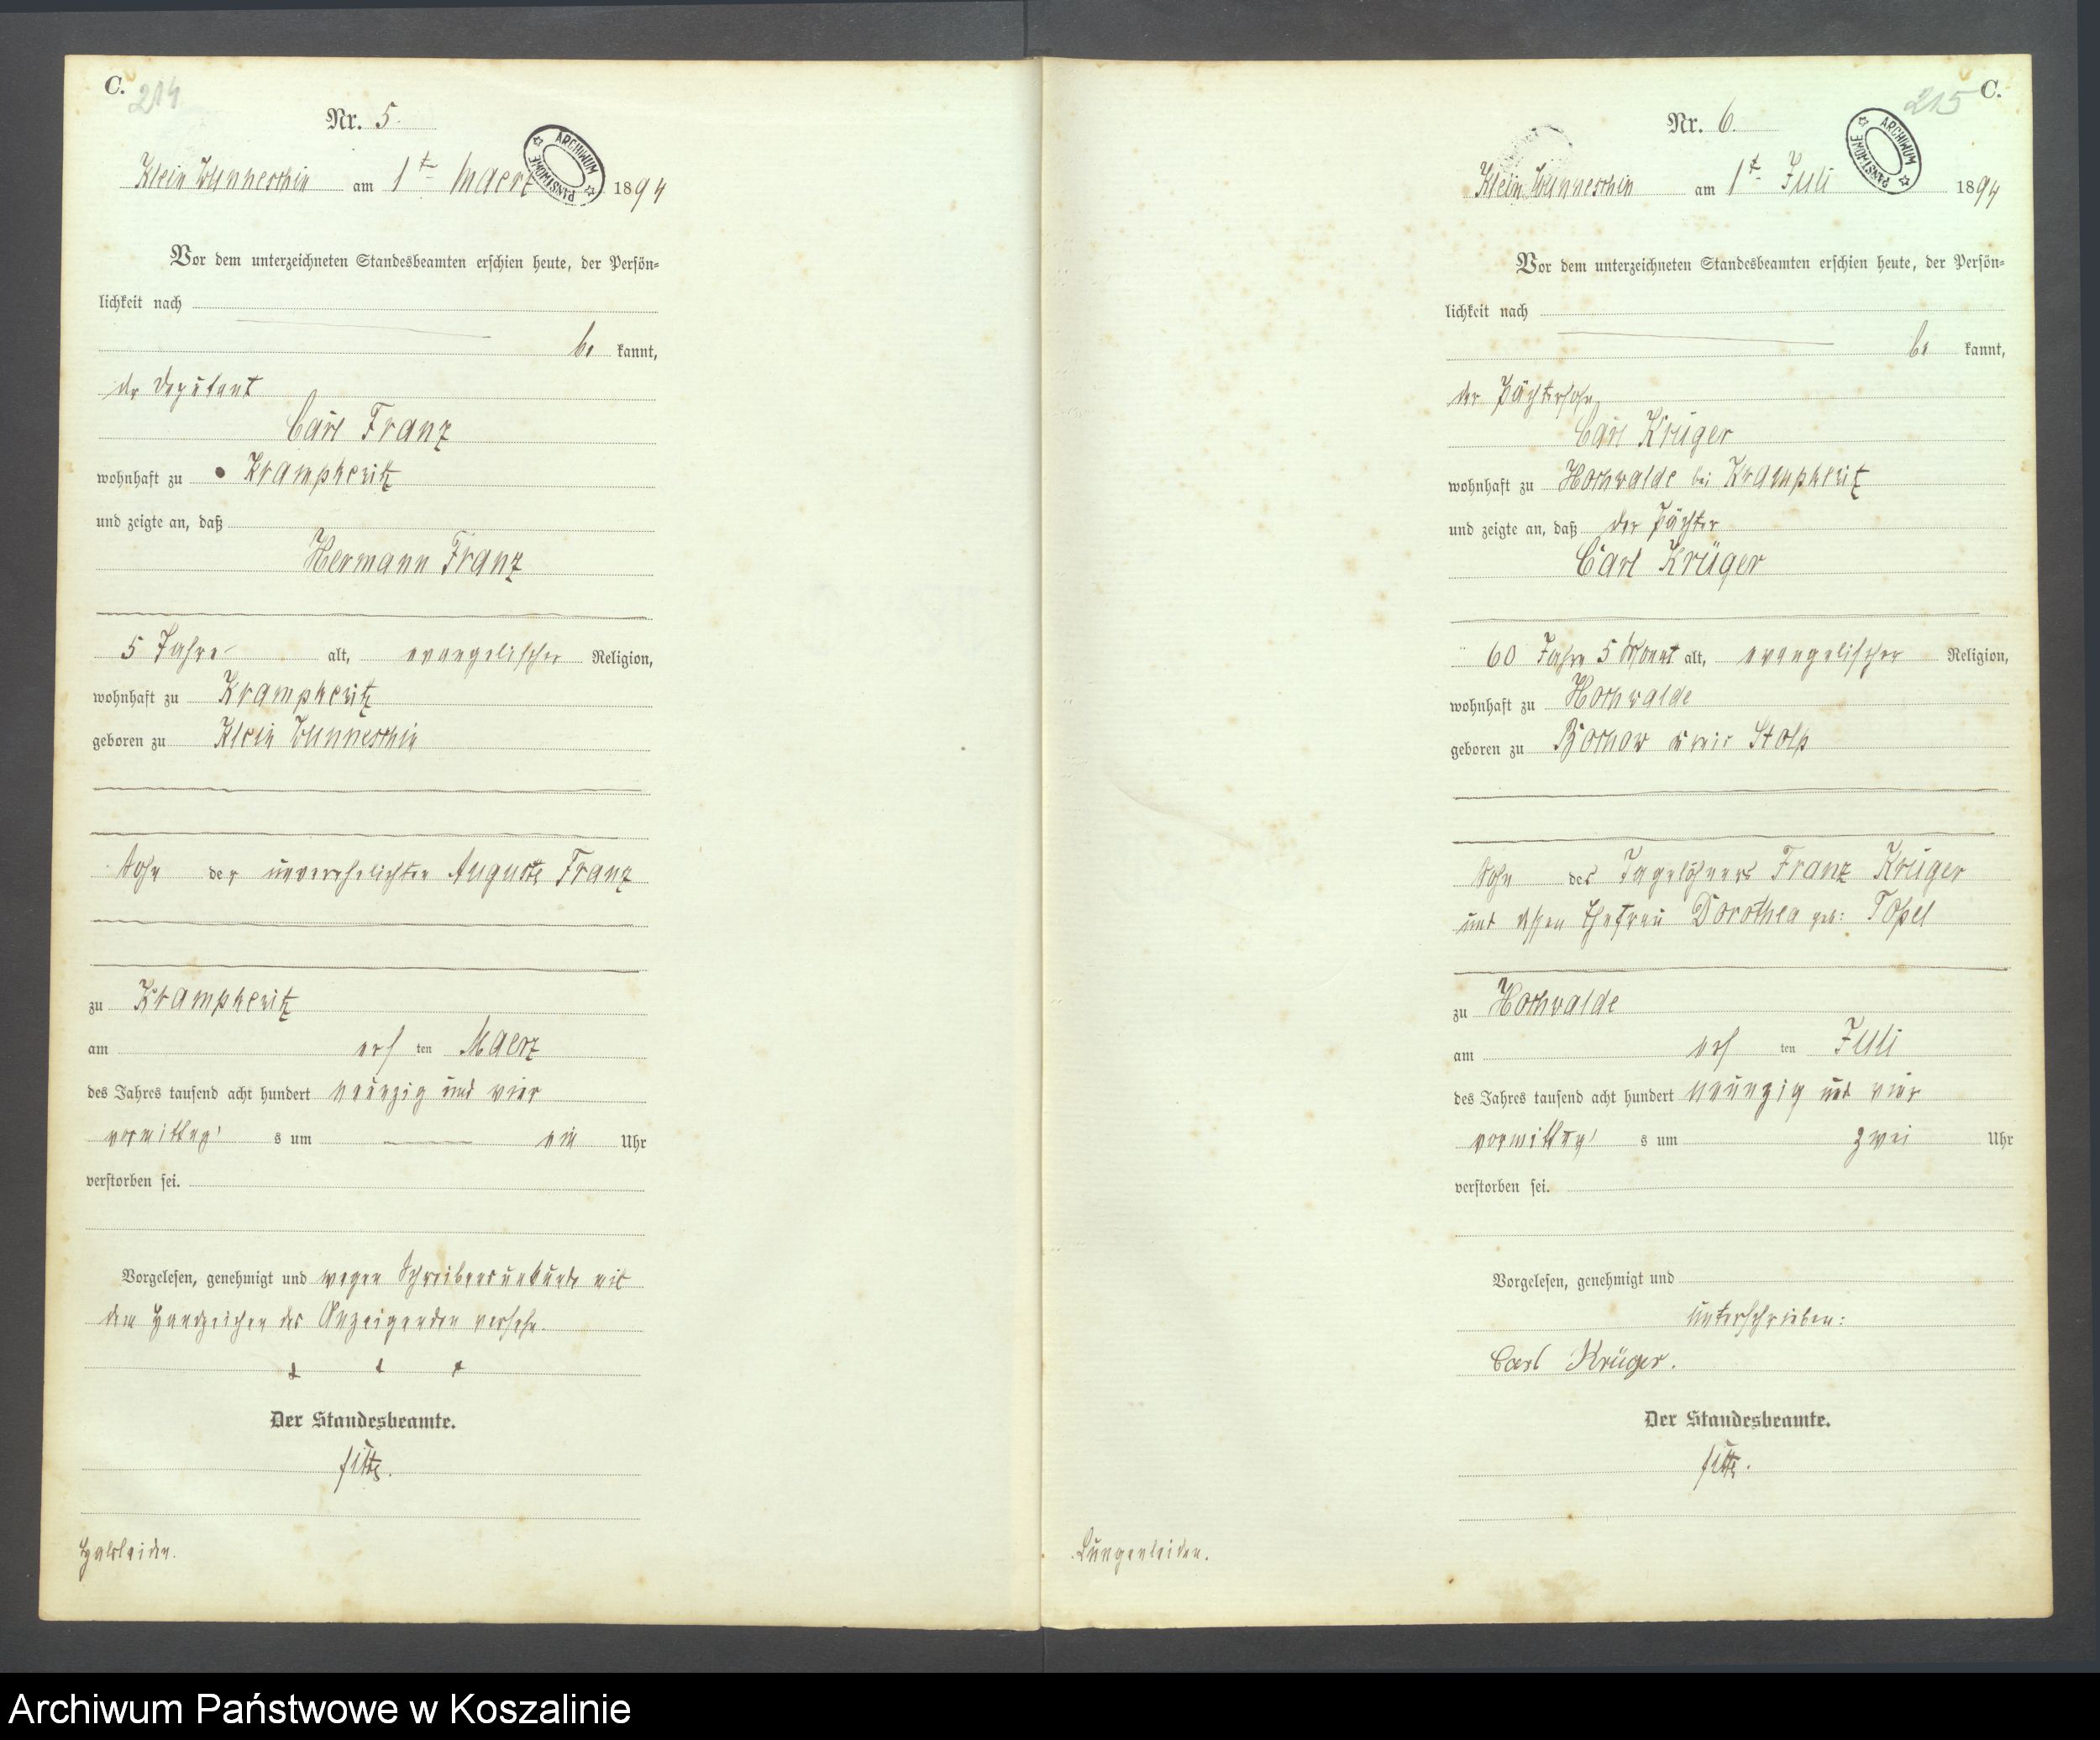 C.
214
Nr. 5.
Klein Wunneschin am 1t Maerz 1894
ARCHIWUM PAŃSTWOWE
Vor dem unterzeichneten Standesbeamten erschien heute, der Persön-
lichkeit nach
be kannt,
der Deputant
Carl Franz
wohnhaft zu Krampkewitz
und zeigte an, daß
Hermann Franz
5 Jahre alt, evangelischer Religion,
wohnhaft zu Krampkewitz
geboren zu Klein Wunneschin
Sohn der unverehelichten Auguste Franz
zu Krampkewitz
am ers ten Maerz
des Jahres tausend acht hundert neunzig und vier
vormittag s um ein Uhr
verstorben sei.
Vorgelesen, genehmigt und wegen Schreibensunkunde mit
dem Handzeichen des Anzeigenden versehn.
+ + +
Der Standesbeamte.
Halsleiden.
C.
215
Nr. 6.
Klein Wunneschin am 1t Juli 1894
ARCHIWUM PAŃSTWOWE
Vor dem unterzeichneten Standesbeamten erschien heute, der Persön-
lichkeit nach
be kannt,
der Pächtersohn
Carl Krüger
wohnhaft zu Hochwalde bei Krampkewitz
und zeigte an, daß der Pächter
Carl Krüger
60 Jahre 5 Monat alt, evangelischer Religion,
wohnhaft zu Hochwalde
geboren zu Bochow Kreis Stolp
Sohn des Tagelöhners Franz Krüger
und dessen Ehefrau Dorothea geb:
zu Hochwalde
am ers ten Juli
des Jahres tausend acht hundert neunzig und vier
vormittag s um zwei Uhr
verstorben sei.
Vorgelesen, genehmigt und
unterschrieben:
Carl Krüger.
Der Standesbeamte.
Lungenleiden.
Archiwum Państwowe w Koszalinie